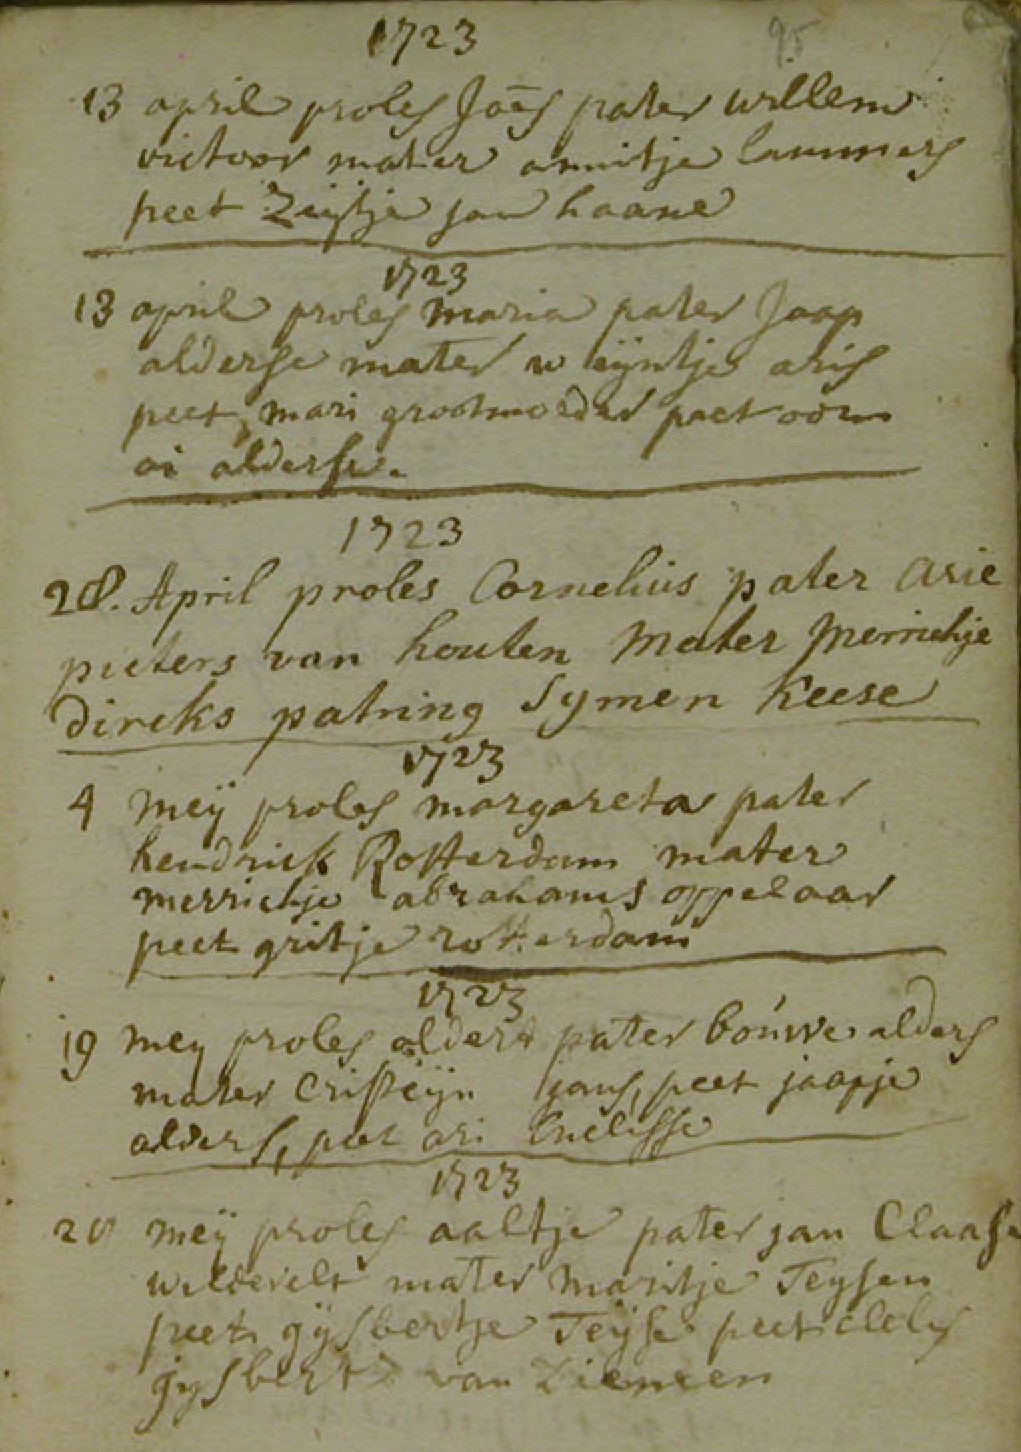 1723
95
13 april proles Joēs pater willem
victoor mater annitje lammers
peet Zijtje jan haane
1723
13 april proles maria pater Jaap
alderse mater wijntje aris
peet mari grootmoeder peet oom
ari alderse.
1723
28. April proles Cornelius pater Arie
pieters van houten Mater Merrichje
dircks patring Symen Keese
1723
4 meij proles margareta pater
hendrick Rotterdam mater
merrichje abrahams oppelaar
peet gritje rotterdam
1723
19 mey proles aldert pater bouwe alders
mater Cristeijn jans, peet jaapje
alders, peet ari
1723
20 meij proles aaltje pater jan Claase
wilderelt mater maritje Teysen
peet gijsbertje Teijse peet
gysbert van Zieneen